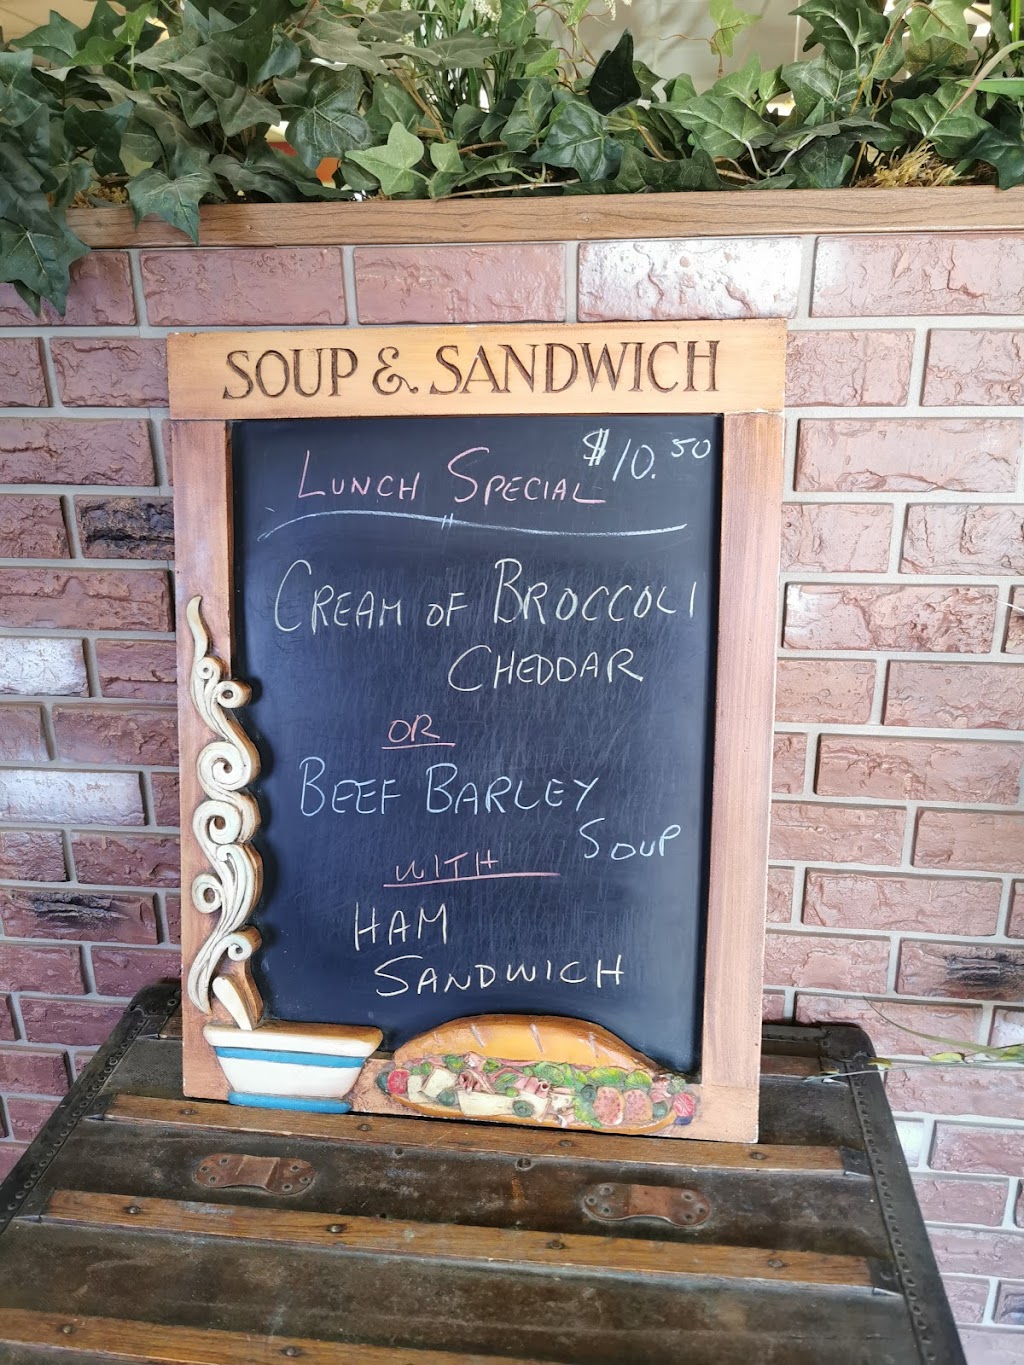 SOUP & SANDWICH
LUNCH SPECIAL $10.50
CREAM OF BROCCOLI
CHEDDAR
OR
BEEF BARLEY
SOUP
WITH
HAM
SANDWICH